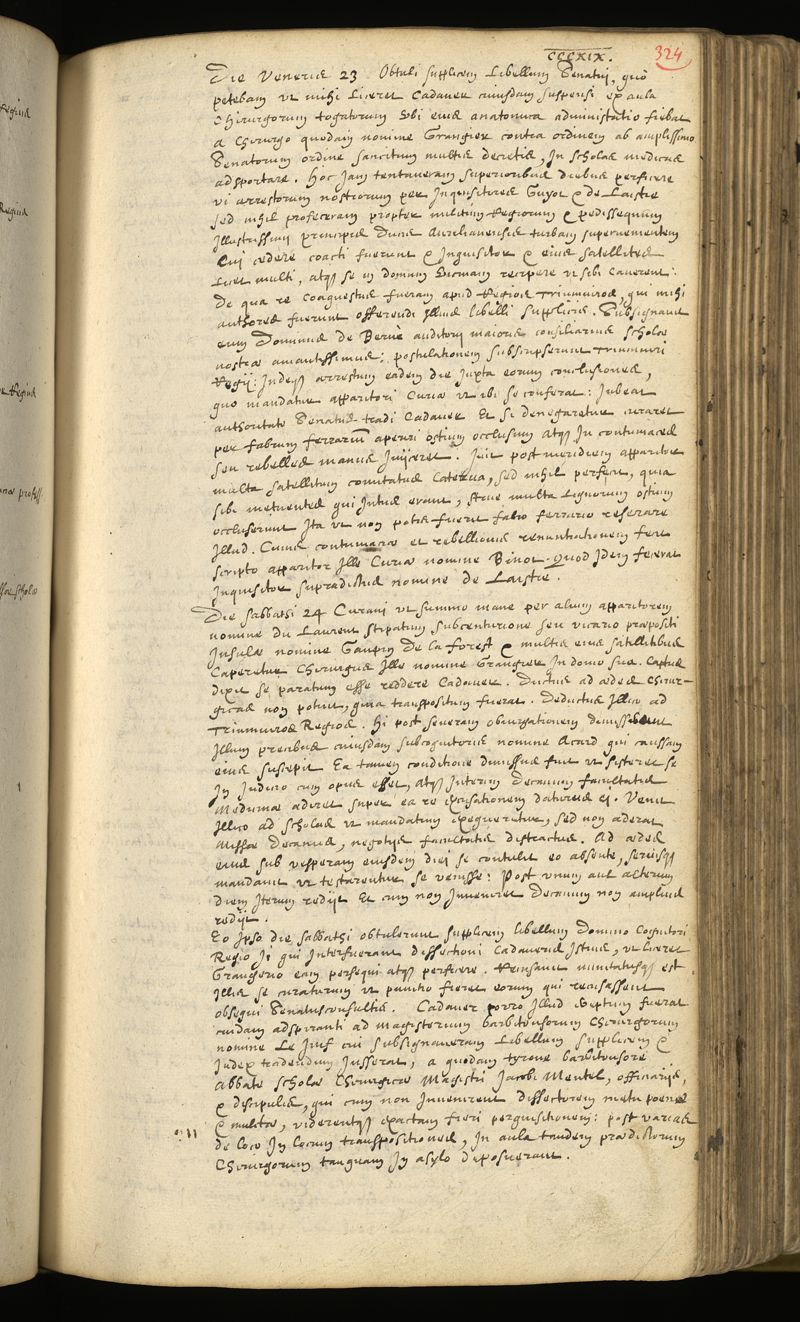 CCCXIX. 324
Die Veneris 23 Obtuli supplicem Libellum Senatui, quo
petebam ut mihi liceret Cadaver cuiusdam suspensi ex aula
Chirurgorum togatorum Ubi eius anatomica administratio fiebat
a Chirurgo quodam nomine Grangier contra ordinem ab amplissimo
Senatorum ordine sancitum multis decretis, In scholas medicas
adsportare. Hoc Jam tentaveram superioribus diebus perficere
vi arrestorum nostrorum per Inquisitores Guyot & de Laistre
sed nihil profeceram propter militum Regiorum & pedissequum
Illustrissimi principis Ducis Aurelianensis turbam supervenientem
Cui cedere coacti fuerunt & Inquisitor & eius satellites
Licet multi, atq; se in domum vicinam recipere ut sibi caverent:
De qua re Conquestus fueram apud Regios Triumviros, qui mihi
authores fuerunt offerendi Illius libelli supplicis. Subsignavit
eum Dominus de Berue auditor maiorus consiliarius scholae
nostrae amantissimus; postulationem subscripserunt Triumviri
Regii: Indeq; arrestum eadem die Juxta eorum conclusiones,
quo mandatur apparitori Curiae ut ibi se conferat: Jubeat
authoritate Senatus tradi Cadaver Et si denegaretur curaret
per fabrum ferrarium aperiri ostium occlusum atq; In contumaces
seu rebelles manus Injiceret. Ivit post meridiem apparitor
multa satellitum comitatus Caterva, sed nihil perfecit, quia
sibi metuentes qui Intus erant, strue multa Lignorum ostium
occluserunt Ita ut non potis fuerit fabro ferrario reserare
Illud. Cuius contumaciae et rebellionis renuntiationem fecit
scripto apparitor Ille Curiae nomine Binot. Quod Idem fecerat
Inquisitor supradictus nomine de Laistre.
Die sabbathi 24 Curavi ut summo mane per alium apparitorem
nomine du Laurent stipatum subcenturione seu vicario praepositi
Insulae nomine Gaupin De la forest & multis eius satellitibus
Caperetur Chirurgus Ille nomine Grangier In domo sua. Captus
dixit se paratum esse reddere Cadaver. Ductus ad aedes Chirur-
gicas non potuit, quia transpositum fuerat. Deductus Illico ad
Triumviros Regios. Hi post severam obiurgationem dimiserunt
Illum precibus cuiusdam subcognitoris nomine Acard qui caussam
eius suscepit Ea tamen conditione dimissus fuit ut sisteret se
In Judicio cum opus esset, atq; Interim Decanum facultatis
Medicinae adiret super ea re excusationem daturus ei. Venit
Illico ad scholas ut mandatum exequeretur, sed non aderat
Decanus, negotiis facultatis distractus. Ad aedes
eius sub vesperam eiusdem diei se contulit eo absente, servisq;
mandavit ut testarentur se venisse: Post unum aut alterum
diem Iterum rediit Et cum non Inveniret Decanum non amplius
rediit.
Eo Ipso die sabbathi obtulerunt supplicem libellum Domino Cognitori
Regio Ii qui Interfuerant dissectioni Cadaveris Istius, ut liceret
Grangerio eam persequi atq; perficere. Rensavit minitatusq; est
Illis se curaturum ut punitio fieret eorum qui recusassent
obsequi Senatusconsultis. Cadaver porro Illud ereptum fuerat
cuidam adspiranti ad magisterium barbitonsorum Chirurgorum
nomine Le Juif cui subsignaveram Libellum supplicem &
Judex tradendum Jusserat, a quodam tyrone barbitonsore
Abbate scholae Chirurgicae Magistri Jacobi Mentel, officiariis,
& discipulis, qui cum non Invenirent dissectorem metu poenae
& mulctae, viderentq; exactam fieri perquisitionem: post varias
de loco In locum transpositiones, In aula tandem praedictorum
Chirurgorum tanquam In asylo deposuerant.